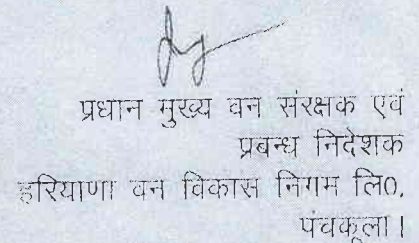 प्रधान मुख्य वन संरक्षक एवं
प्रबन्ध निदेशक
हरियाणा वन विकास निगम लि0,
पंचकूला।